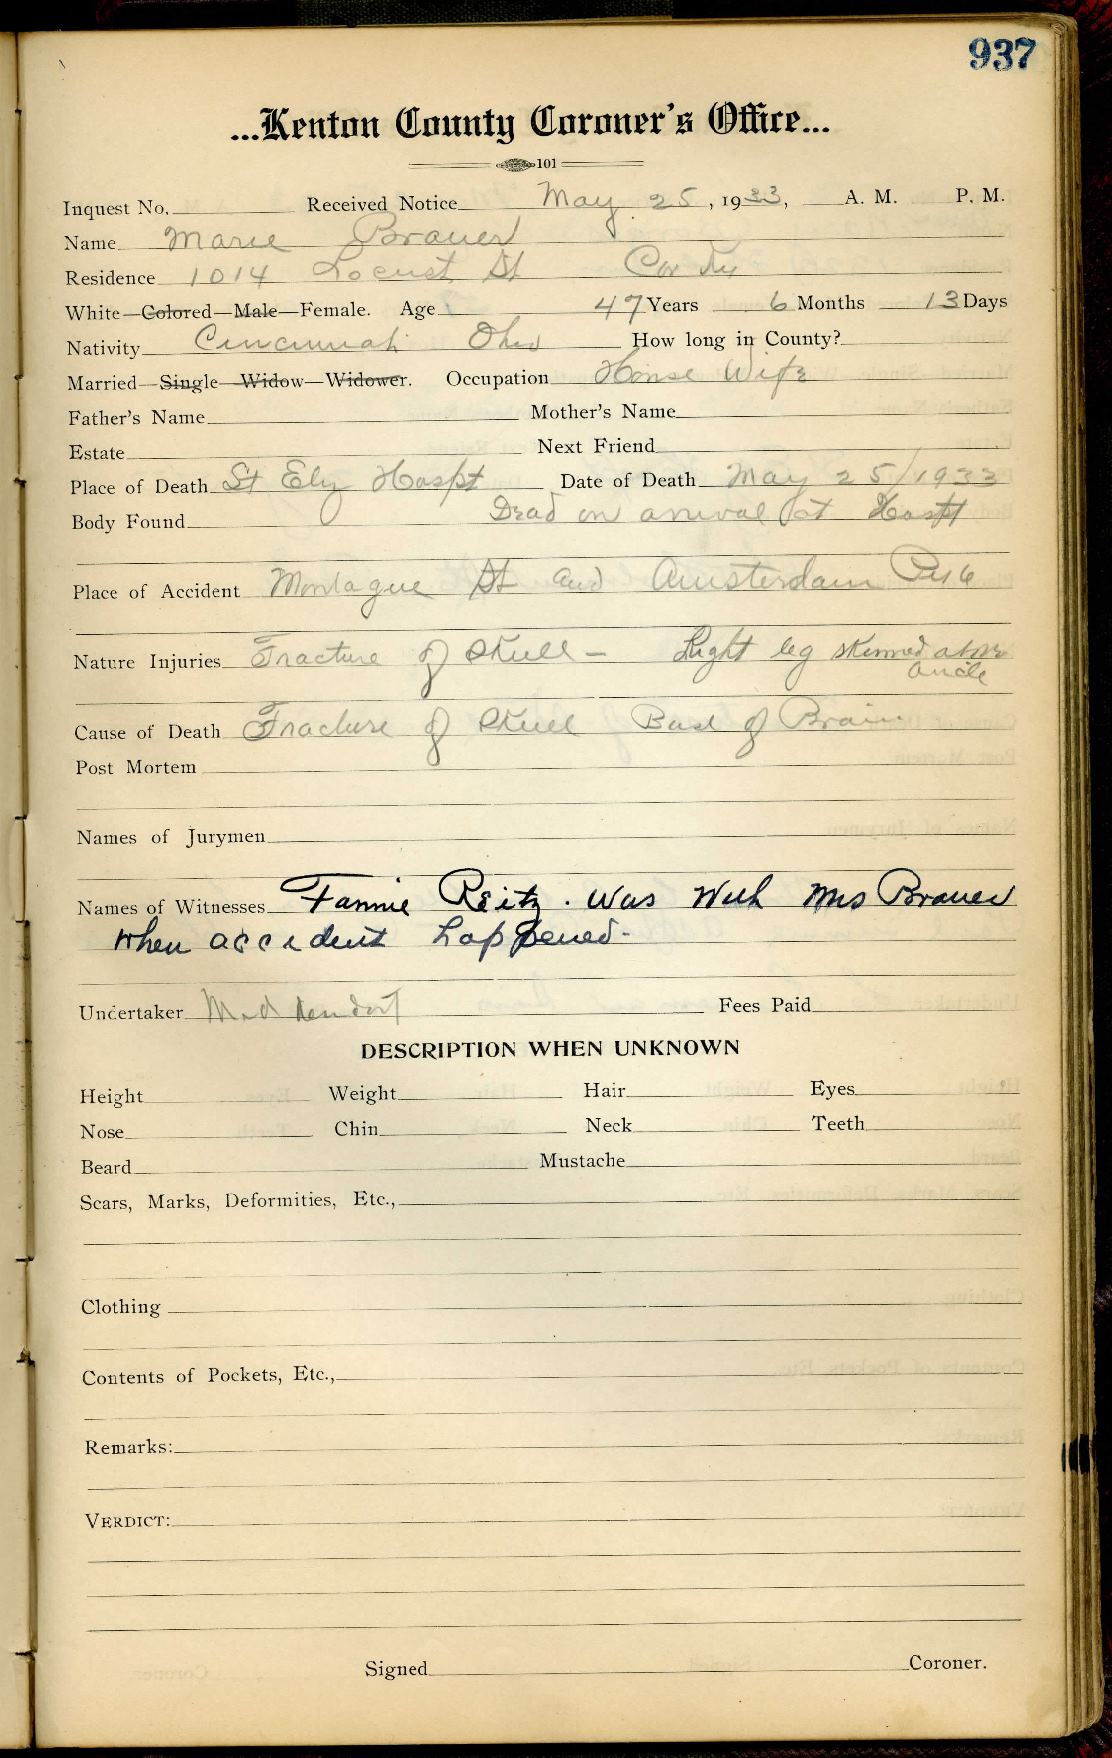 937
...Kenton County Coroner's Office...
101
Inquest No. Received Notice May 25, 1933, A. M. P. M.
Name Marie Brauer
Residence 1014 Locust St Cov Ky
White—Colored—Male—Female. Age 47 Years 6 Months 13 Days
Nativity Cincinnati Ohio How long in County?
Married—Single—Widow—Widower. Occupation House Wife
Father's Name Mother's Name
Estate Next Friend
Place of Death St Eliz Hospt Date of Death May 25/1933
Body Found Dead on arrival at Hospt
Place of Accident Montague St and Amsterdam Pike
Nature Injuries Fracture of Skull — Right leg skinned above
ancle
Cause of Death Fracture of Skull Base of Brain
Post Mortem
Names of Jurymen
Names of Witnesses Fannie Reitz. Was With Mrs Brauer
when accident happened.
Undertaker Fees Paid
DESCRIPTION WHEN UNKNOWN
Height Weight Hair Eyes
Nose Chin Neck Teeth
Beard Mustache
Scars, Marks, Deformities, Etc.,
Clothing
Contents of Pockets, Etc.,
Remarks:
VERDICT:
Signed Coroner.